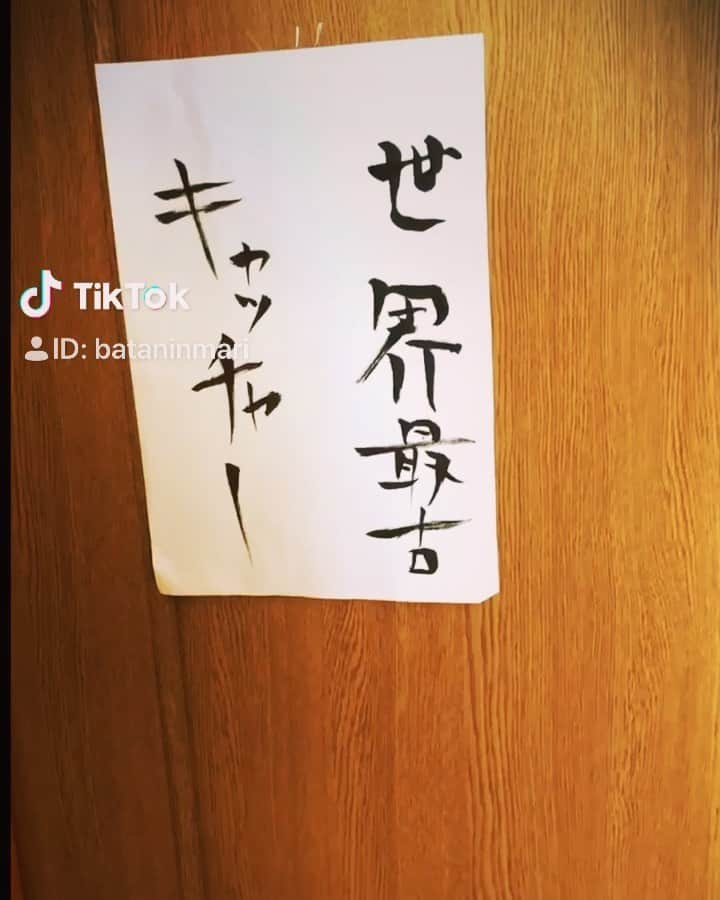 世界最古
キャッチャー
TikTok
ID: bataninmari